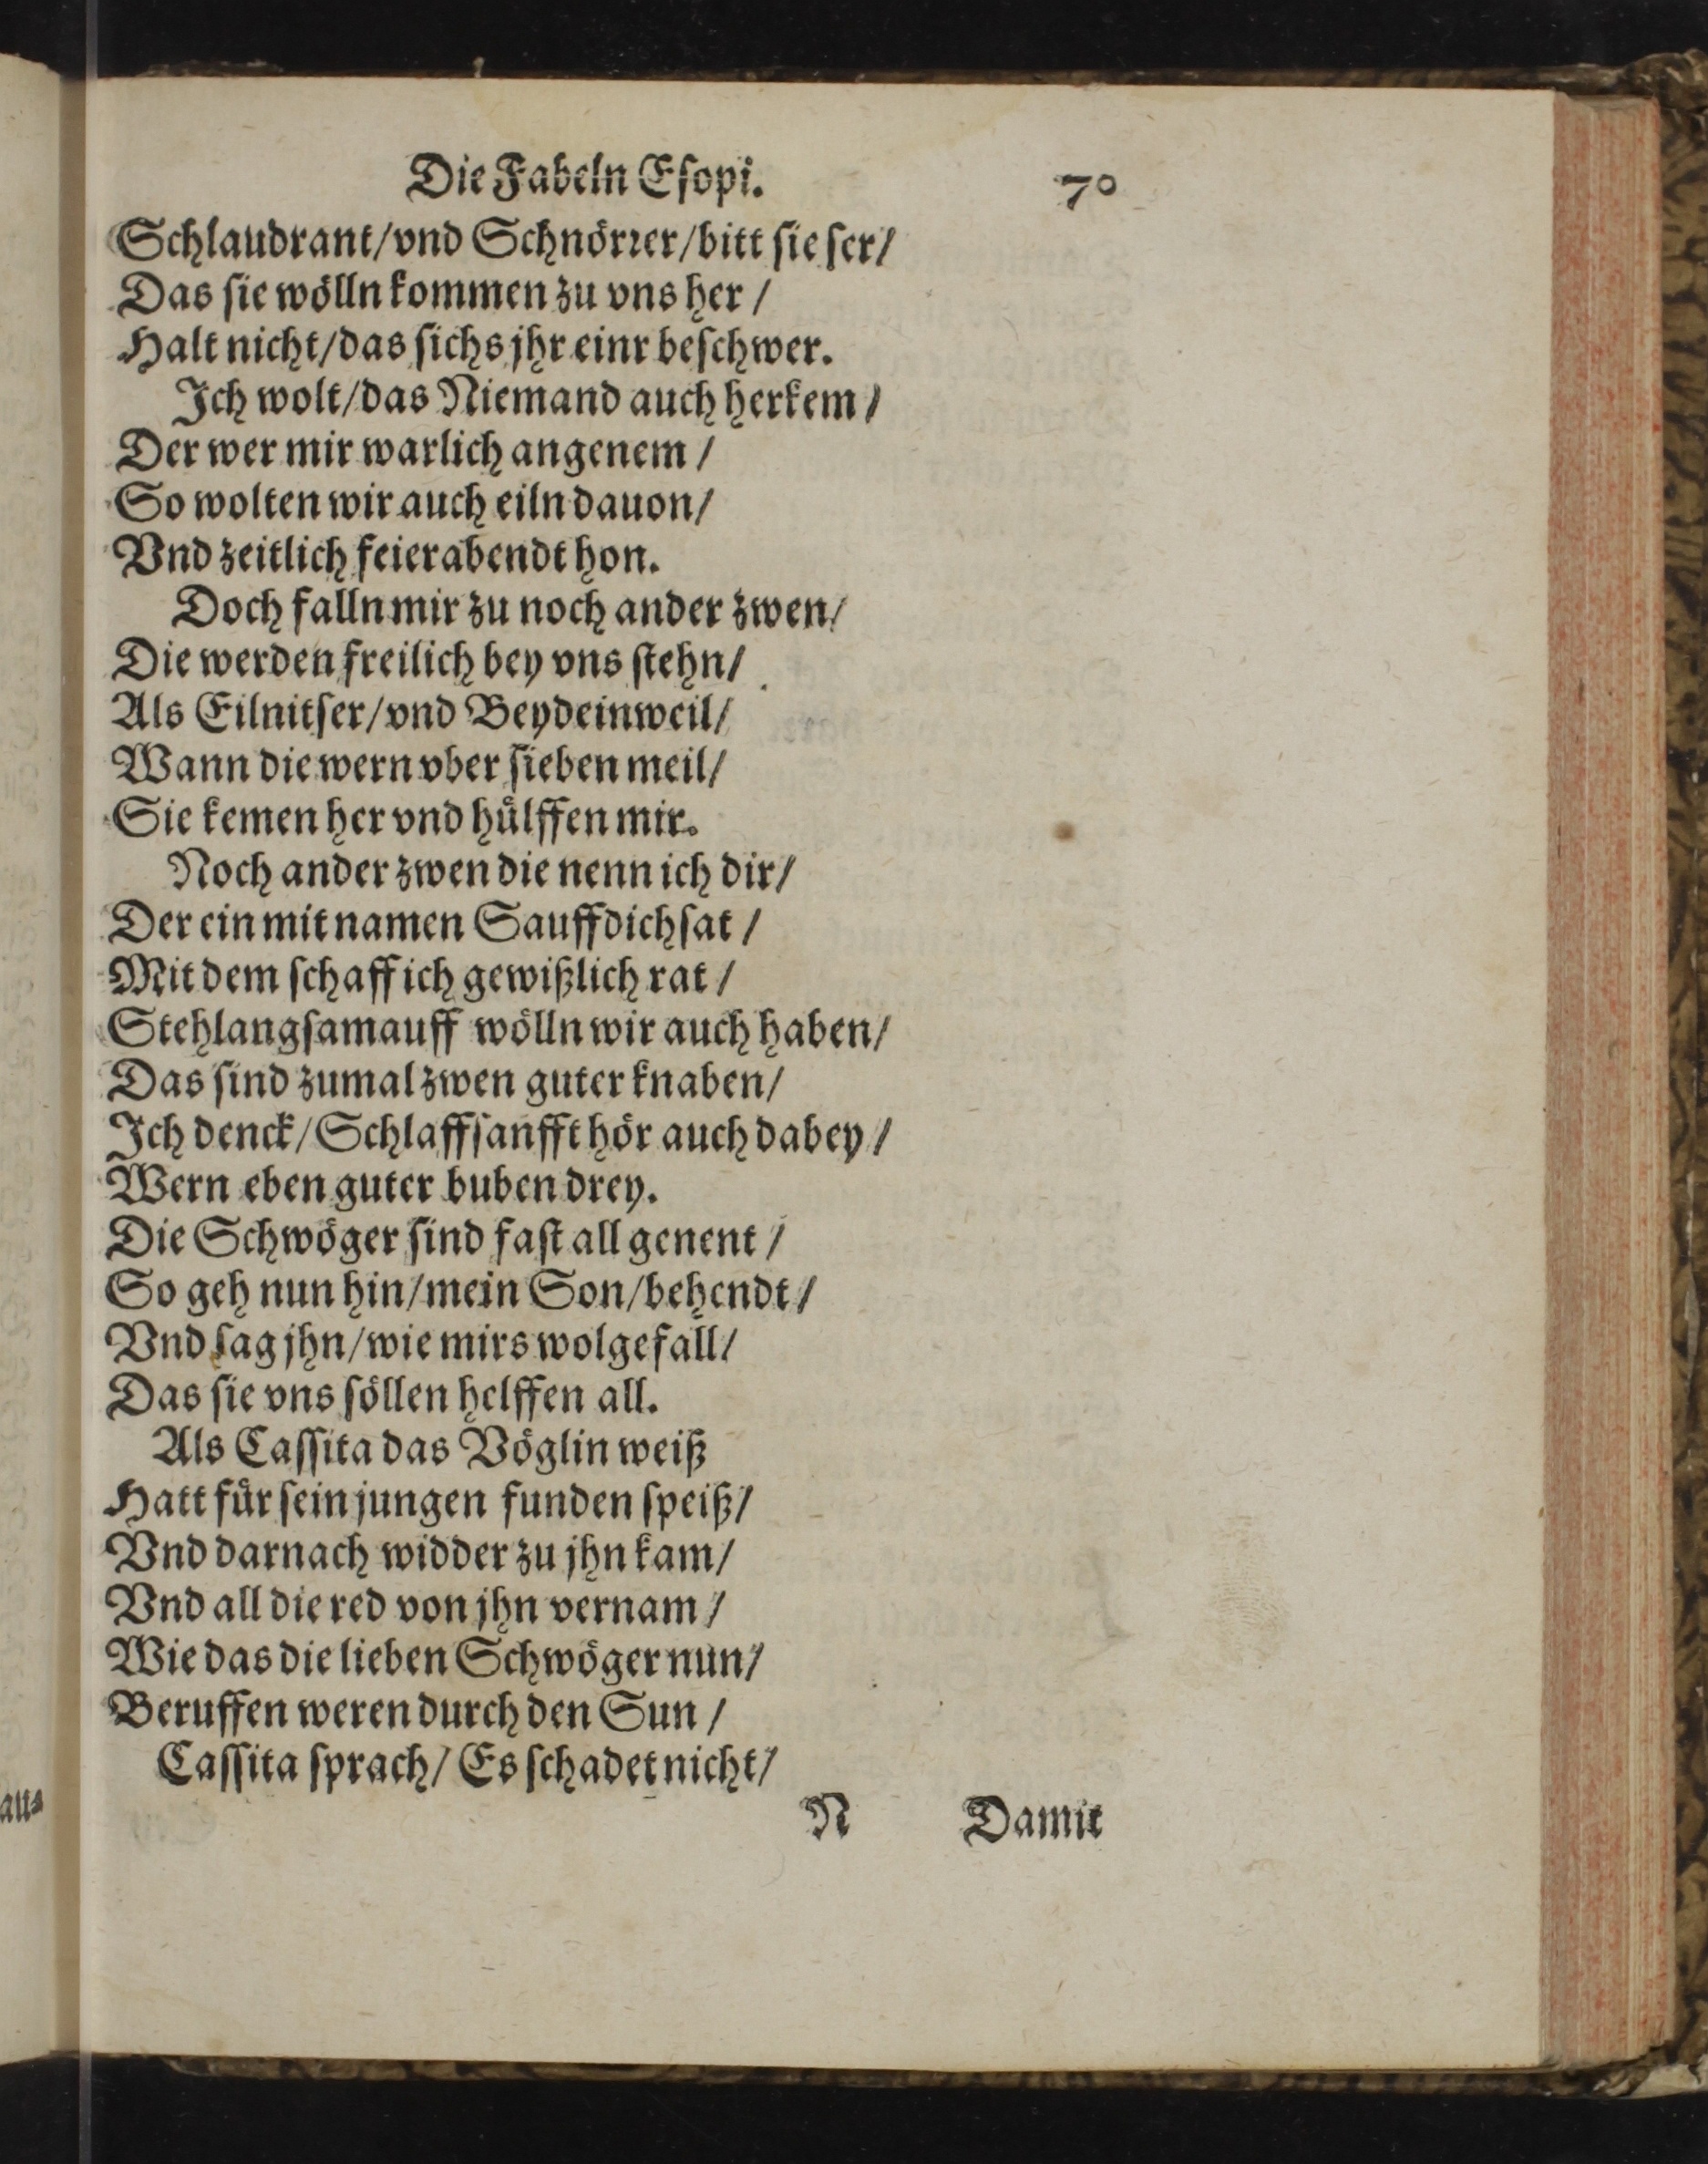 Die Fabeln Eſopi. 70
Schlaudrant/vnd Schnörꝛer/bitt ſie ſer/
Das ſie wölln kommen zu vns her /
Halt nicht/das ſichs jhr einr beſchwer.
Ich wolt/das Niemand auch herkem /
Der wer mir warlich angenem /
So wolten wir auch eiln dauon/
Vnd zeitlich feierabendt hon.
Doch falln mir zu noch ander zwen/
Die werden freilich bey vns ſtehn/
Als Eilnitſer/vnd Beydeinweil/
Wann die wern vber ſieben meil/
Sie kemen her vnd hülffen mir.
Noch ander zwen die nenn ich dir/
Der ein mit namen Sauffdichſat /
Mit dem ſchaff ich gewißlich rat /
Stehlangſamauff wölln wir auch haben/
Das ſind zumal zwen guter knaben/
Ich denck/Schlaffſanfft hör auch dabey /
Wern eben guter buben drey.
Die Schwöger ſind faſt all genent /
So geh nun hin/mein Son/behendt /
Vnd ſag jhn/wie mirs wolgefall/
Das ſie vns ſöllen helffen all.
Als Caſſita das Vöglin weiß
Hatt für ſein jungen funden ſpeiß/
Vnd darnach widder zu jhn kam/
Vnd all die red von jhn vernam /
Wie das die lieben Schwöger nun/
Beruffen weren durch den Sun /
Caſſita ſprach/ Es ſchadet nicht/
N Damit